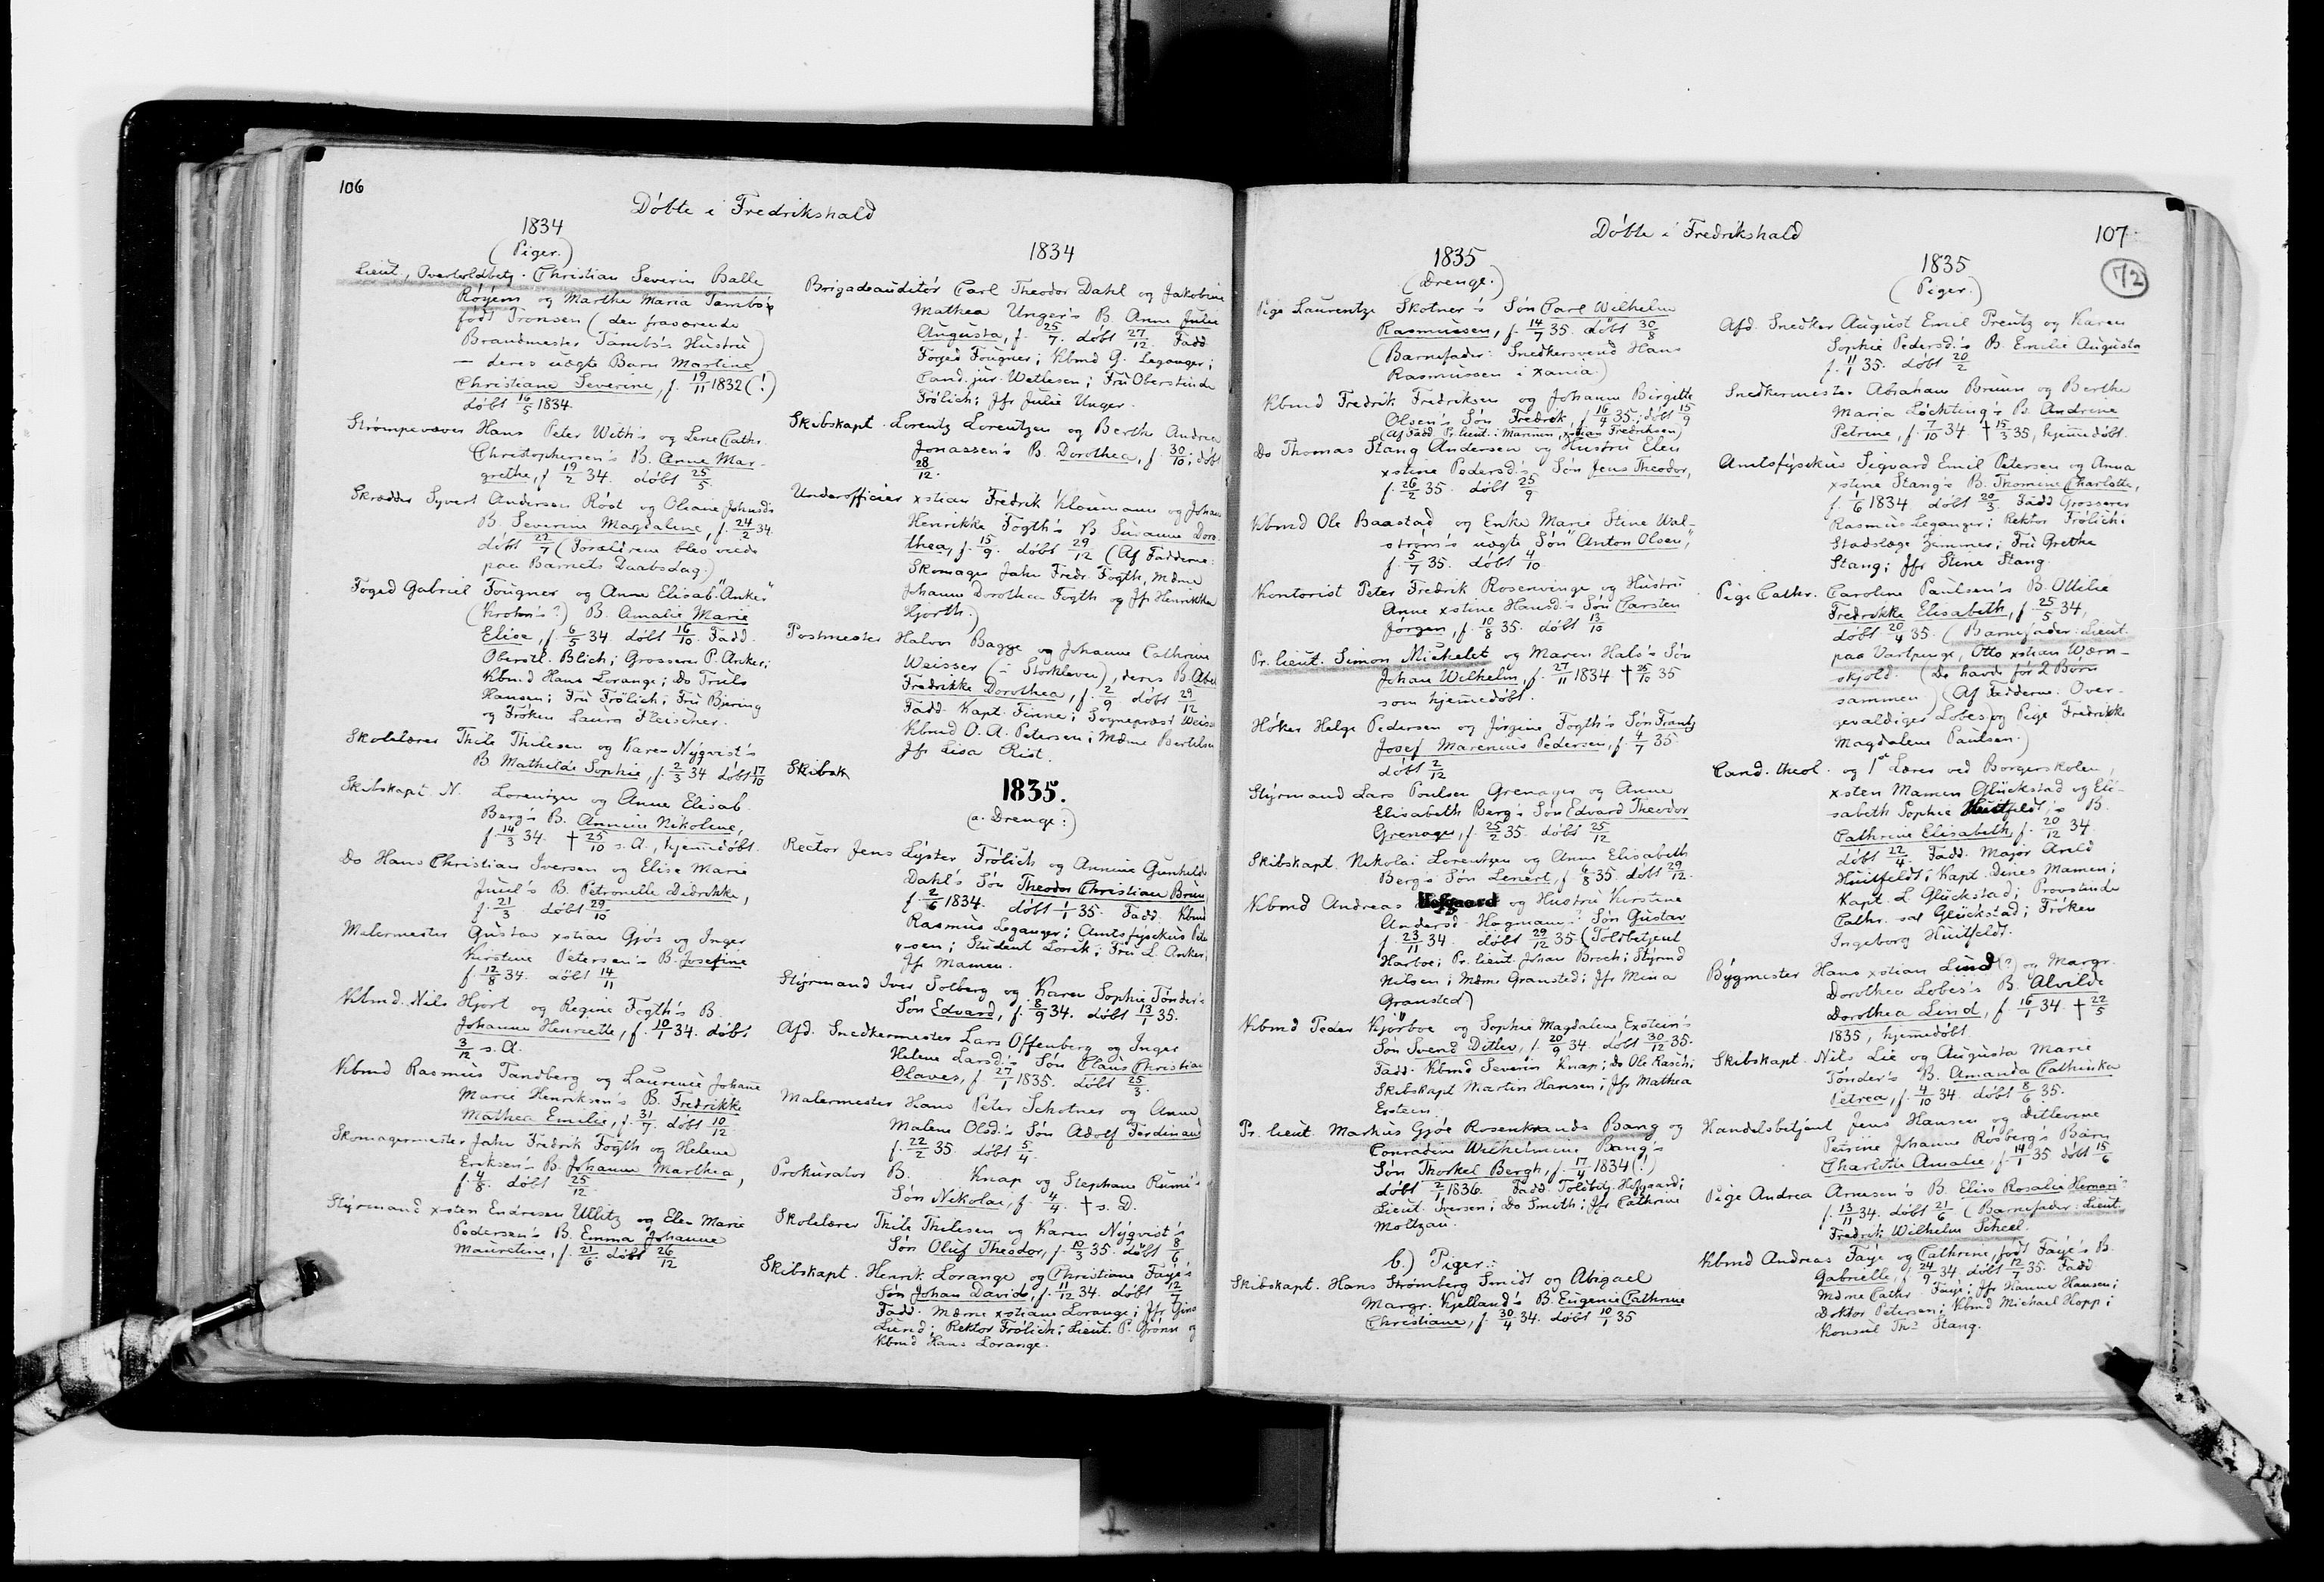 106
Döbte i Fredrikshald
1834
(Piger.)
Lieut., Overtoldbetj. Christian Severin Balle
Röyem og Marthe Maria Tambs's
född Tronsen (den fraværende
Brandmester Tambs's Hustru)
— deres uægte Barn Martine
Christiane Severine, f. 19/11 1832 (!)
döbt 16/5 1834.
Strömpevæver Hans Peter With's og Lene Cathr.
Christophersen's B. Anne Mar-
grethe, f 19/2 34. döbt 25/5.
Skrædder Syvert Andersen Röst og Oliane Johnsd's
B. Severine Magdalene, f. 24/2 34.
döbt 27/7 (Forældrene blev viede
paa Barnets Daabsdag.)
Foged Gabriel Fougner og Anne Elisab. "Anker"
(Krohn's?) B. Amalie Marie
Elise, f. 6/5 34. döbt 16/10. Fadd.
Oberstl. Blich; Grosserer P. Anker;
Kbmd Hans Lorange; do Truls
Hansen; Fru Frölich; Fru Bjering
og Fröken Laura Fleischer.
Skolelærer Thile Thilesen og Karen Nyqvist's
B. Mathilde Sophie, f. 2/3 34 döbt 17/10
Skibskapt. N. Lorentzen og Anne Elisab.
Berg's B. Annine Nikoline,
f. 14/3 34. † 25/10 s. A., hjemmedöbt.
do Hans Christian Iversen og Elise Marie
Juul's B. Petronelle Didrikke,
f. 21/3 döbt 29/10
Malermester Gustav xstian Gjös og Inger
Kirstine Petersen's B. Josefine
f. 12/8 34. döbt 14/11
Kbmd. Nils Hjort og Regine Fogth's B.
Johanne Henriette, f. 10/1 34. döbt
3/12 s. A.
Kbmd Rasmus Tandberg og Laurence Johane
Marie Henriksen's B. Fredrikke
Mathea Emilie, f. 31/7. döbt 10/12
Skomagermester Jahn Fredrik Fogth og Helene
Eriksen's B. Johanne Marthea,
f. 4/8. döbt 25/12.
Styrmand xsten Endresen Ullitz og Elen Marie
Pedersen's B. Emma Johanne
Mauretine, f. 21/6 döbt 26/12
1834
Brigadeauditör Carl Theodor Dahl og Jakobine
Mathea Unger's B. Anne Julie
Augusta, f. 25/7. döbt 27/12. Fadd
Foged Fougner; Kbmd G. Leganger;
Cand. jur. Wetlesen; Fru Oberstinde
Frölich; Jfr Julie Unger.
Skibskapt. Lorentz Lorentzen og Berthe Andrea
Jonassen's B. Dorothea, f. 30/10; döbt
28/12.
Underofficier xstian Fredrik Kloumann og Johan
Henrikke Fogth's B. Susanne Doro-
thea, f. 15/9. döbt 29/12 (Af Fadderne:
Skomager Jahn Fredr. Fogth, Mdme
Johanne Dorothea Fogth og Jfr Henrikke
Hjorth.)
Postmester Halvor Bagge og Johanne Cathrine
Weisser (i Storkleven), deres B. Abel
Fredrikke Dorothea, f. 2/9 döbt 29/12
Fadd. Kapt. Finne; Sognepræst Weisser
Kbmd O. A. Petersen; Mdme Bertelsen
Jfr Lisa Rist.
Skibsk
1835.
(a. Drenge:)
Rector Jens Lyster Frölich og Annine Gunhilde
Dahl's Sön Theodor Christian Brun
f. 2/6 1834. döbt 1/1 35. Fadd. Kbmd
Rasmus Leganger; Amtsfysikus Peter-
sen; Student Lorck; Fru L. Anker;
Jfr Mamen.
Styrmand Iver Solberg og Karen Sophie Tönder's
Sön Edvard, f. 8/9 34. döbt 13/1 35.
Afd. Snedkermester Lars Offenberg og Inger
Helene Larsd.'s Sön Claus Christian
Olaves, f. 27/1 1835. döbt 25/3.
Malermester Hans Peter Schotner og Anne
Malene Olsd.'s Sön Adolf Ferdinand
f. 22/2 35. döbt 5/4.
Prokurator B. Knap og Stephane Rumi's
Sön Nikolai, f. 4/4. † s. D.
Skolelærer Thile Thilesen og Karen Nyqvist's
Sön Oluf Theodor, f. 10/3 35. döbt 8/6
Skibskapt. Henrik Lorange og Christiane Faye's
Sön Johan David, f. 11/12 34. döbt 12/7
Fadd. Mdme xstiane Lorange; Jfr Gine
Lund; Rektor Frölich; Lieut. P. Grönn og
Kbmd Hans Lorange.
Döbte i Fredrikshald
107
72
1835
(Drenge.)
Pige Laurentze Skotner's Sön Carl Wilhelm
Rasmussen, f. 14/7 35. döbt 30/8
(Barnefader: Snedkersvend Hans
Rasmussen i xania.)
Kbmd Fredrik Fredriksen og Johanne Birgitte
Olsen's Sön Fredrik, f 16/4 35; döbt 15/9
(Af Fadd Pr. lieut. i Marinen, xstian Fredriksen)
do Thomas Stang Andersen og Hustru Elen
xstine Pedersd.'s Sön Jens Theodor,
f. 26/2 35. döbt 25/9
Kbmd Ole Baastad og Enke Marie Stine Wal-
ström's uægte Sön "Anton Olsen",
f. 5/7 35. döbt 4/10.
Kontorist Peter Fredrik Rosenvinge og Hustru
Anne xstine Hansd.'s Sön Carsten
Jörgen, f. 10/8 35. döbt 13/10
Pr. lieut. Simon Mickelet og Maren Hals's Sön
Johan Wilhelm, f. 27/11 1834 † 25/10 35
som hjemmedöbt.
Höker Helge Pedersen og Jörgine Fogth's Sön Frantz
Josef Marenius Pedersen, f. 4/7 35.
döbt 2/12
Styrmand Lars Poulsen Grenager og Anne
Elisabeth Berg's Sön Edvard Theodor
Grenager, f. 25/2 35. döbt 25/12
Skibskapt. Nikolai Lorentzen og Anne Elisabeth
Berg's Sön Lenert, f. 6/8 35. döbt 29/12.
Kbmd Andreas Hofgaard og Hustru Kirstine
Andersd. Hagmann's Sön Gustav
f. 23/11 34 döbt 29/12 35. (Toldbetjent
Harboe; Pr. lieut. Johan Broch; Styrmd
Nilsen; Mdme Gransted; Jfr Mina
Gransted.)
Kbmd Peder Kjörboe og Sophie Magdalene Exstein's
Sön Svend Ditlev, f. 20/9 34. döbt 30/12 35.
Fadd. Kbmd Severin Knap; do Ole Rasch;
Skibskapt Martin Hansen; Jfr Mathea
Exstein.
Pr. lieut. Markus Gjöe Rosenkrands Bang og
Conradine Wilhelmine Bang's
Sön Thorkel Bergh, f. 17/4 1834 (!)
döbt 2/1 1836. Fadd. Toldbetj. Hofgaard;
Lieut. Iversen; do Smith; Jfr Cathrine
Moltzau.
b.) Piger:
Skibskapt. Hans Strömberg Smidt og Abigael
Margr. Kjelland's B. Eugenie Cathrine
Christiane, f. 30/4 34. döbt 10/1 35
1835
(Piger.)
Afd. Snedker August Emil Prentz og Karen
Sophie Pedersd.'s B. Emilie Augusta
f. 11/1 35. döbt 20/2
Snedkermester Abraham Bruun og Berthe
Maria Löchting's B. Andrine
Petrine, f. 7/10 34. † 15/3 35, hjemmedöbt.
Amtsfysikus Sigvard Emil Petersen og Anna
xstine Stang's B. Thomine Charlotte,
f. 1/6 1834 döbt 20/3. Fadd Grosserer
Rasmus Leganger; Rektor Frölich;
Stadslæge Zimmer; Fru Grethe
Stang; Jfr Stine Stang.
Pige Cathr. Caroline Paulsen's B. Ottilie
Fredrikke Elisabeth, f. 25/5 34,
döbt 20/4 35. (Barnefader: Lieut.
paa Vartpenge, Otto xstian Wærn-
skjold. (De havde för 2 Börn
sammen.) (Af Fadderne: Over-
gevaldiger Lobes) og Pige Fredrikke
Magdalene Paulsen.)
Cand. theol. og 1ste Lærer ved Borgerskolen,
xsten Mamen Glückstad og Eli-
sabeth Sophie Huitfeldt's B.
Cathrine Elisabeth, f. 20/12 34
döbt 22/4. Fadd. Major Arild
Huitfeldt; Kapt. Dines Mamen;
Kapt. L Glückstad; Provstinde
Cathr. sal Glückstad; Fröken
Ingeborg Huitfeldt.
Bygmester Hans xstian Lind (?) og Margr.
Dorothea Lobes's B. Alvilde
Dorothea Lind, f. 16/1 34. † 22/5
1835, hjemmedöbt.
Skibskapt. Nils Lie og Augusta Marie
Tönder's B. Amanda Cathinka
Petrea, f. 4/10 34. döbt 8/6 35.
Handelsbetjent Jens Hansen og Ditlevine
Petrine Johanne Rosberg's Barn
Charlotte Amalie, f. 14/1 35 döbt 15/6
Pige Andrea Arnesen's B. Elise Rosalie Hemari?
f. 13/11 34. döbt 21/6 (Barnefader: Lieut.
Fredrik Wilhelm Scheel.
Kbmd Andreas Faye og Cathrine, född Faye's B.
Gabrielle, f. 24/9 34. döbt 12/7 35. Fadd
Mdme Cathr Faye; Jfr Hanne Hansen;
Doktor Petersen; Kbmd Michael Hopp;
Konsul Ths Stang.